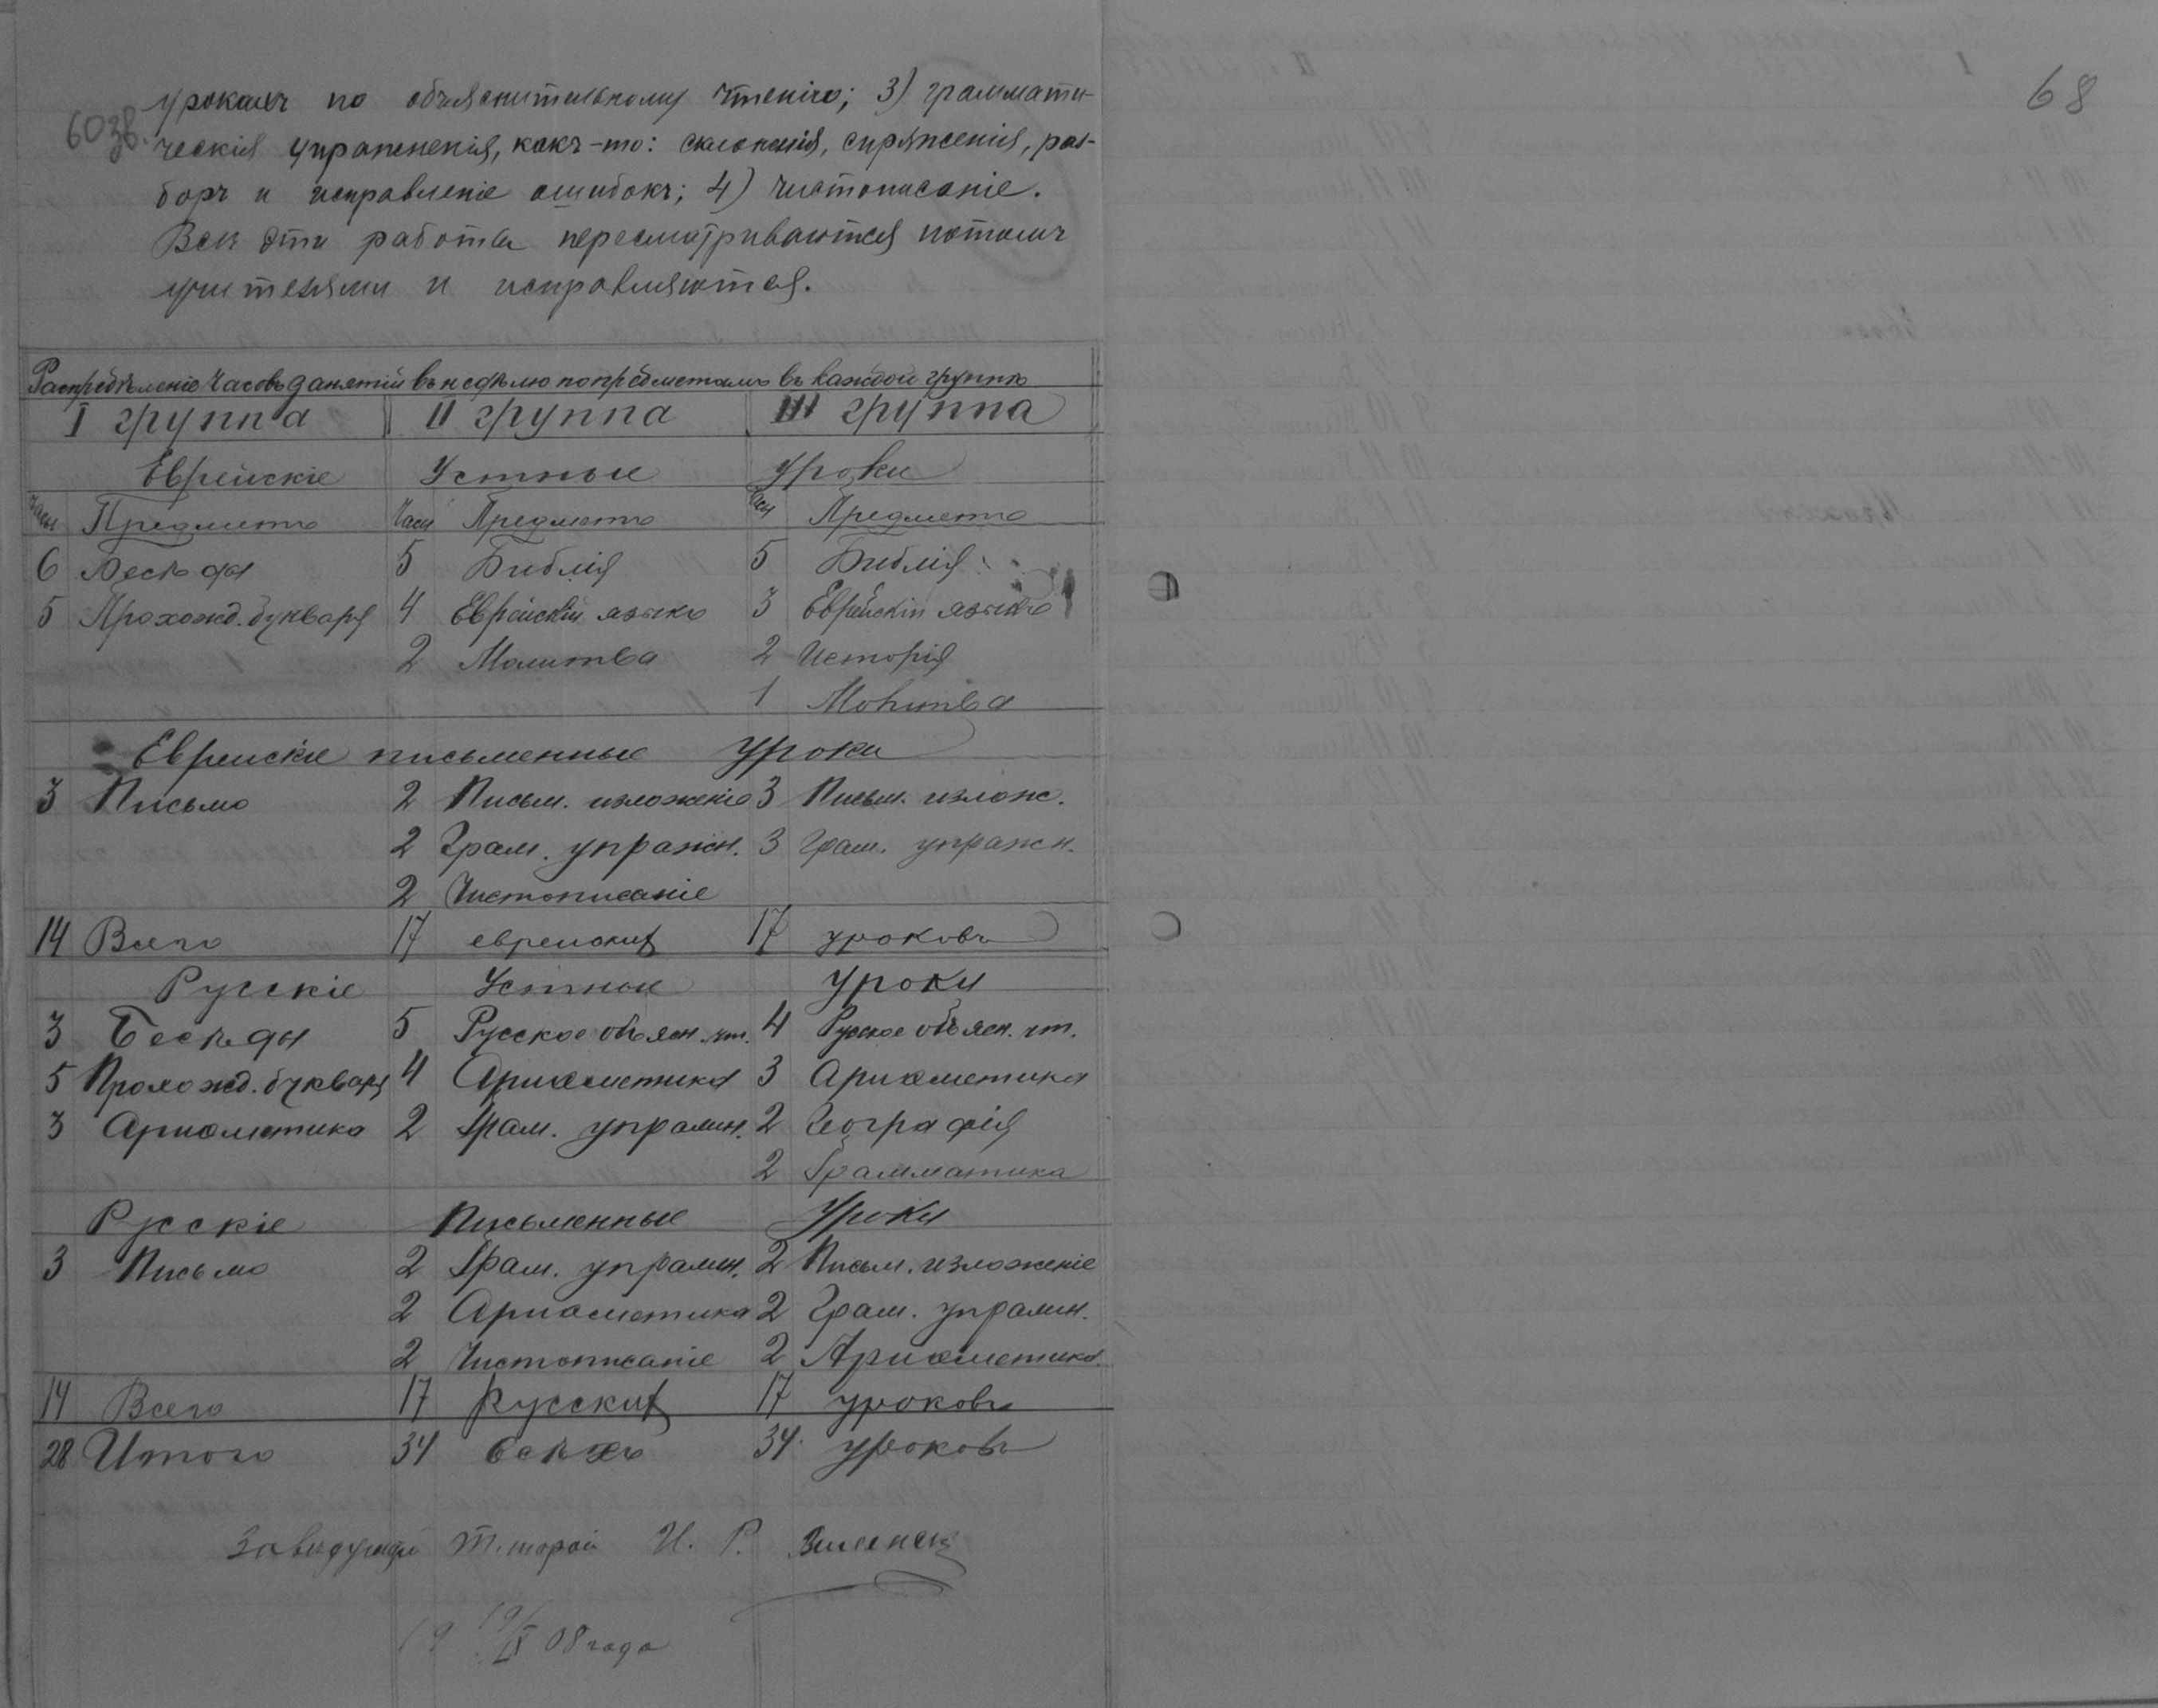 68
60зв.
урокамъ по объяснительному чтенію; 3) граммати-
ческія упражненія, какъ-то: склоненія, спряженія, раз-
боръ и исправленіе ошибокъ; 4) чистописаніе.
Всѣ эти работы пересматриваются потомъ
учителями и исправляются.
Распредѣленіе часовъ занятій въ недѣлю по предметамъ въ каждой группѣ
I группа II группа III группа
Еврейскіе Устные Уроки
Часы Предметъ Часы Предметъ Часы Предметъ
6 Бесѣды 5 Библія 5 Библія
5 Прохожд. букваря 4 Еврейскій языкъ 3 Еврейскій языкъ
2 Молитва 2 Исторія
1 Молитва
Еврейскіе письменные Уроки
3 Письмо 2 Письм. изложеніе 3 Письм. излож.
2 Грам. упражн. 3 Грам. упражн.
2 Чистописаніе
14 Всего 17 еврейских 17 уроковъ
Русскіе Устные Уроки
3 Бесѣды 5 Русское объясн. чт. 4 Русское объясн. чт.
5 Прохожд. букваря 4 Ариѳметика 3 Ариѳметика
3 Ариѳметика 2 Грам. упражн. 2 Географія
2 Грамматика
Русскіе Письменные Уроки
3 Письмо 2 Грам. упражн. 2 Письм. изложеніе
2 Ариѳметика 2 Грам. упражн.
2 Чистописаніе 2 Ариѳметика
14 Всего 17 Русских 17 уроковъ
28 Итого 34 всѣхъ 34 уроковъ
Завѣдующій Т.-торой И. Р.
19 19/IX 08 года